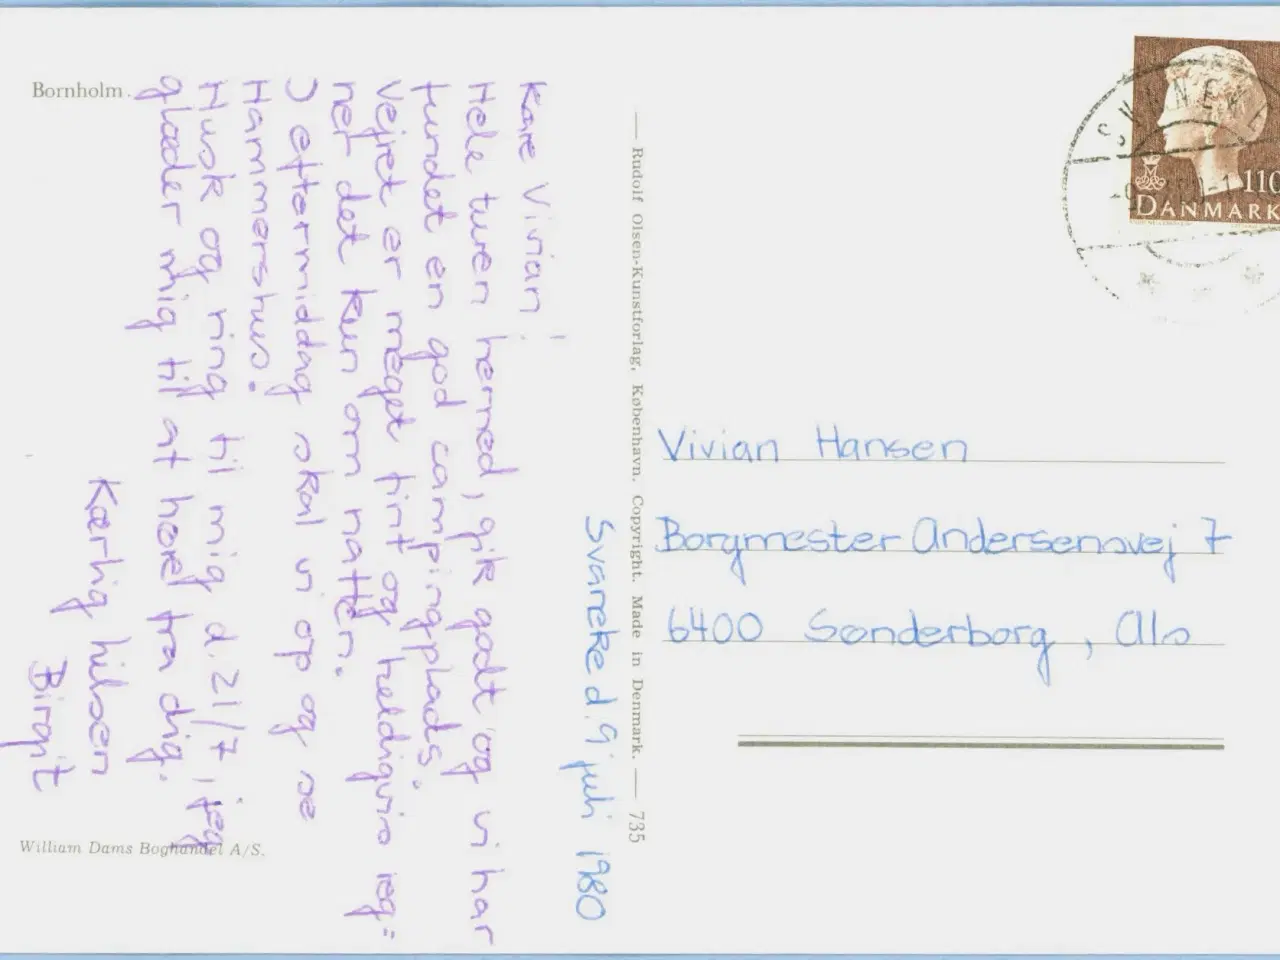 Bornholm.
Svaneke d. 9 juli 1980
Kære Vivian!
Hele turen herned, gik godt og vi har
fundet en god campingplads.
Vejret er meget fint og heldigvis reg=
net det kun om natten.
I eftermiddag skal vi op og se
Hammershus.
Husk og ring til mig d. 21/7, jeg
glæder mig til at høre fra dig.
Kærlig hilsen
Birgit
William Dams Boghandel A/S.
— Rudolf Olsen-Kunstforlag, København. Copyright. Made in Denmark. — 735
SVANEKE
110
DANMARK
Vivian Hansen
Borgmester Andersensvej 7
6400 Sønderborg, Als